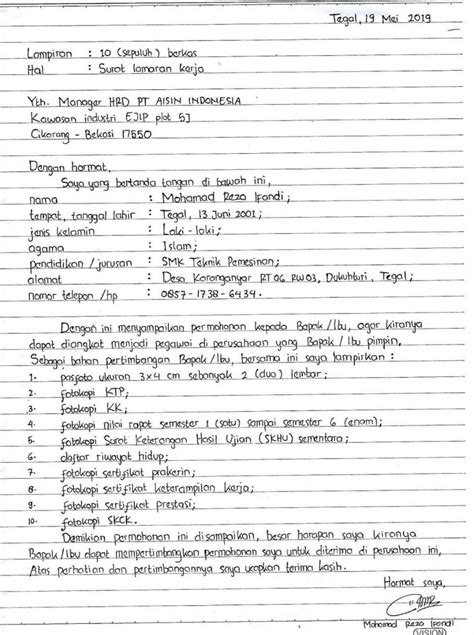 Tegal, 19 Mei 2019
Lampiran : 10 (sepuluh) berkas
Hal : Surat lamaran kerja
Yth. Manager HRD PT AISIN INDONESIA
Kawasan industri EJIP plot 5J
Cikarang - Bekasi 17550
Dengan hormat,
Saya yang bertanda tangan di bawah ini,
nama : Mohamad Reza Ifandi;
tempat, tanggal lahir : Tegal, 13 Juni 2001;
jenis kelamin : Laki - laki;
agama : Islam;
pendidikan / jurusan : SMK Teknik Pemesinan;
alamat : Desa Karanganyar RT06 RW03, Dukuhturi, Tegal;
nomor telepon /hp : 0857-1738-6434.
Dengan ini menyampaikan permohonan kepada Bapak / Ibu, agar kiranya
dapat diangkat menjadi pegawai di perusahaan yang Bapak / Ibu pimpin,
Sebagai bahan pertimbangan Bapak / Ibu, bersama ini saya lampirkan :
1. pasfoto ukuran 3x4 cm sebanyak 2 (dua) lembar;
2. fotokopi KTP;
3. fotokopi KK;
4. fotokopi nilai rapot semester 1 (satu) sampai semester 6 (enam);
5. fotokopi Surat Keterangan Hasil Ujian (SKHU) sementara;
6. daftar riwayat hidup;
7. fotokopi sertifikat prakerin;
8. fotokopi sertifikat keterampilan kerja;
9. fotokopi sertifikat prestasi;
10. fotokopi SKCK.
Demikian permohonan ini disampaikan, besar harapan saya kiranya
Bapak / Ibu dapat mempertimbangkan permohonan saya untuk diterima di perusahaan ini,
Atas perhatian dan pertimbangannya saya ucapkan terima kasih.
Hormat saya,
Mohamad Reza Ifandi
VISION